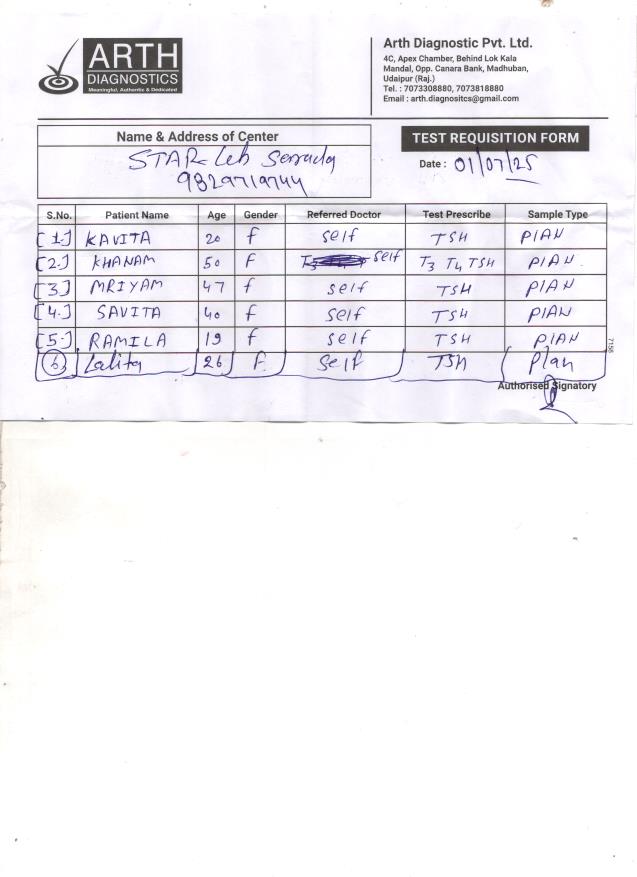 ARTH
DIAGNOSTICS
Meaningful, Authentic & Dedicated
Arth Diagnostic Pvt. Ltd.
4C, Apex Chamber, Behind Lok Kala
Mandal, Opp. Canara Bank, Madhuban,
Udaipur (Raj.)
Tel. : 7073308880, 7073818880
Email : arth.diagnositcs@gmail.com
Name & Address of Center
STAR Leb
9829719744
TEST REQUISITION FORM
Date : 01/07/25
S.No. Patient Name Age Gender Referred Doctor Test Prescribe Sample Type
[1.] KAVITA 20 f self TSH PIAN
[2.] KHANAM 50 F self T3 T4 TSH PIAN
[3.] MRIYAM 47 f self TSH PIAN
[4.] SAVITA 40 f self TSH PIAN
[5.] RAMILA 19 f self TSH PIAN
6 Lalita 26 F. self TSH Plan
7156
Authorised Signatory